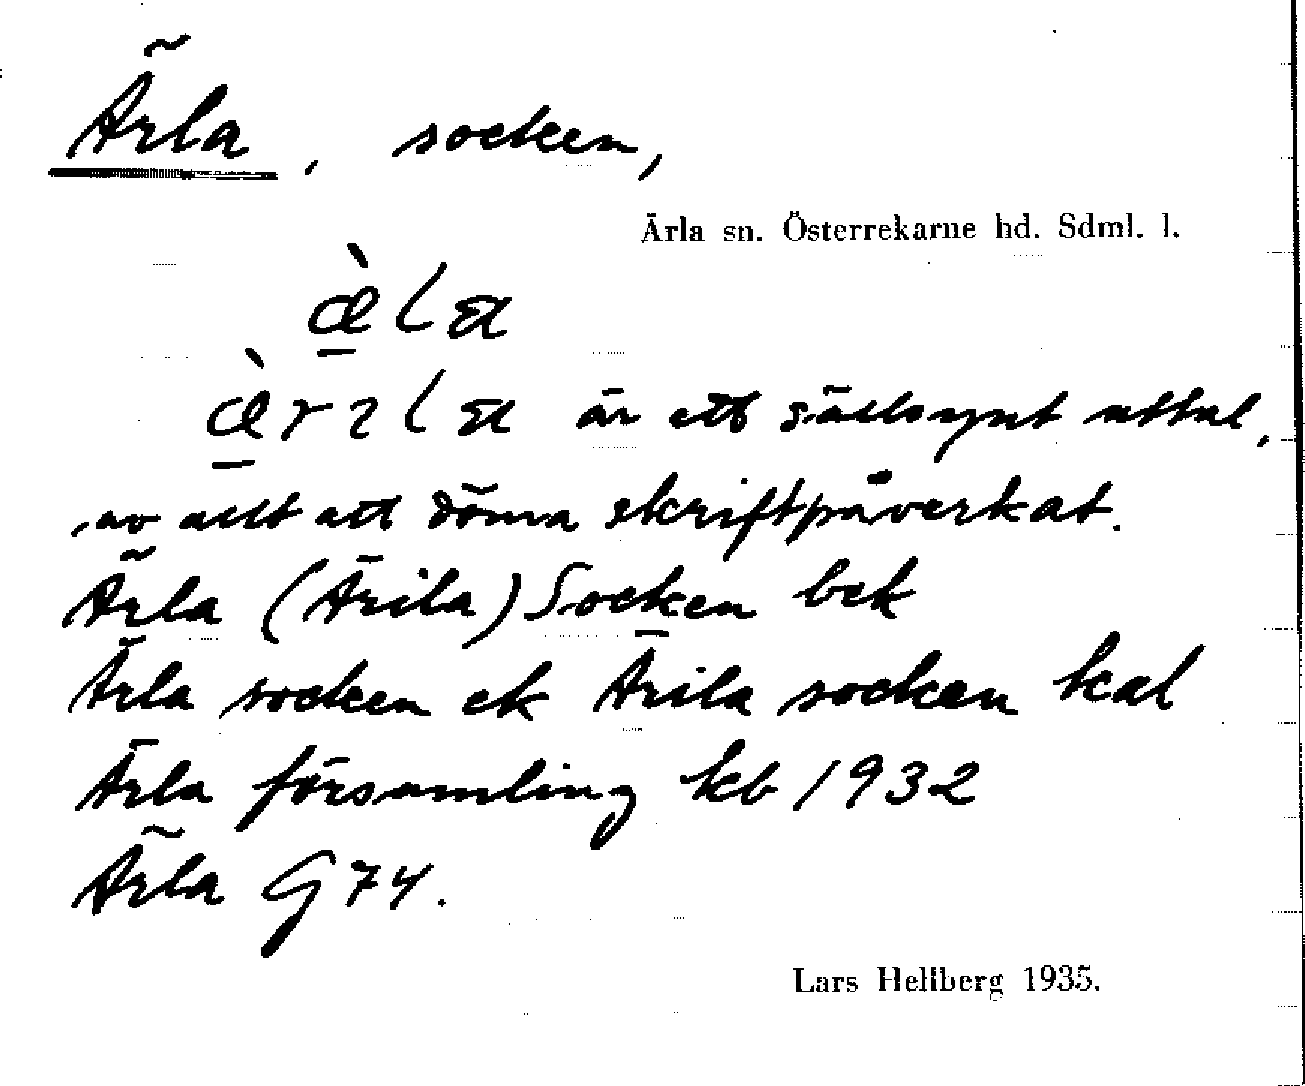 Ärla, socken,
Ärla sn. Österrekarne hd. Sdml. l.
är ett sällsynt uttal,
av allt att döma skriftpåverkat.
Ärla (Ärila) Socken bek
Ärla socken ek Ärila socken kal
Ärla församling kb 1932
Ärla G 74.
Lars Hellberg 1935.